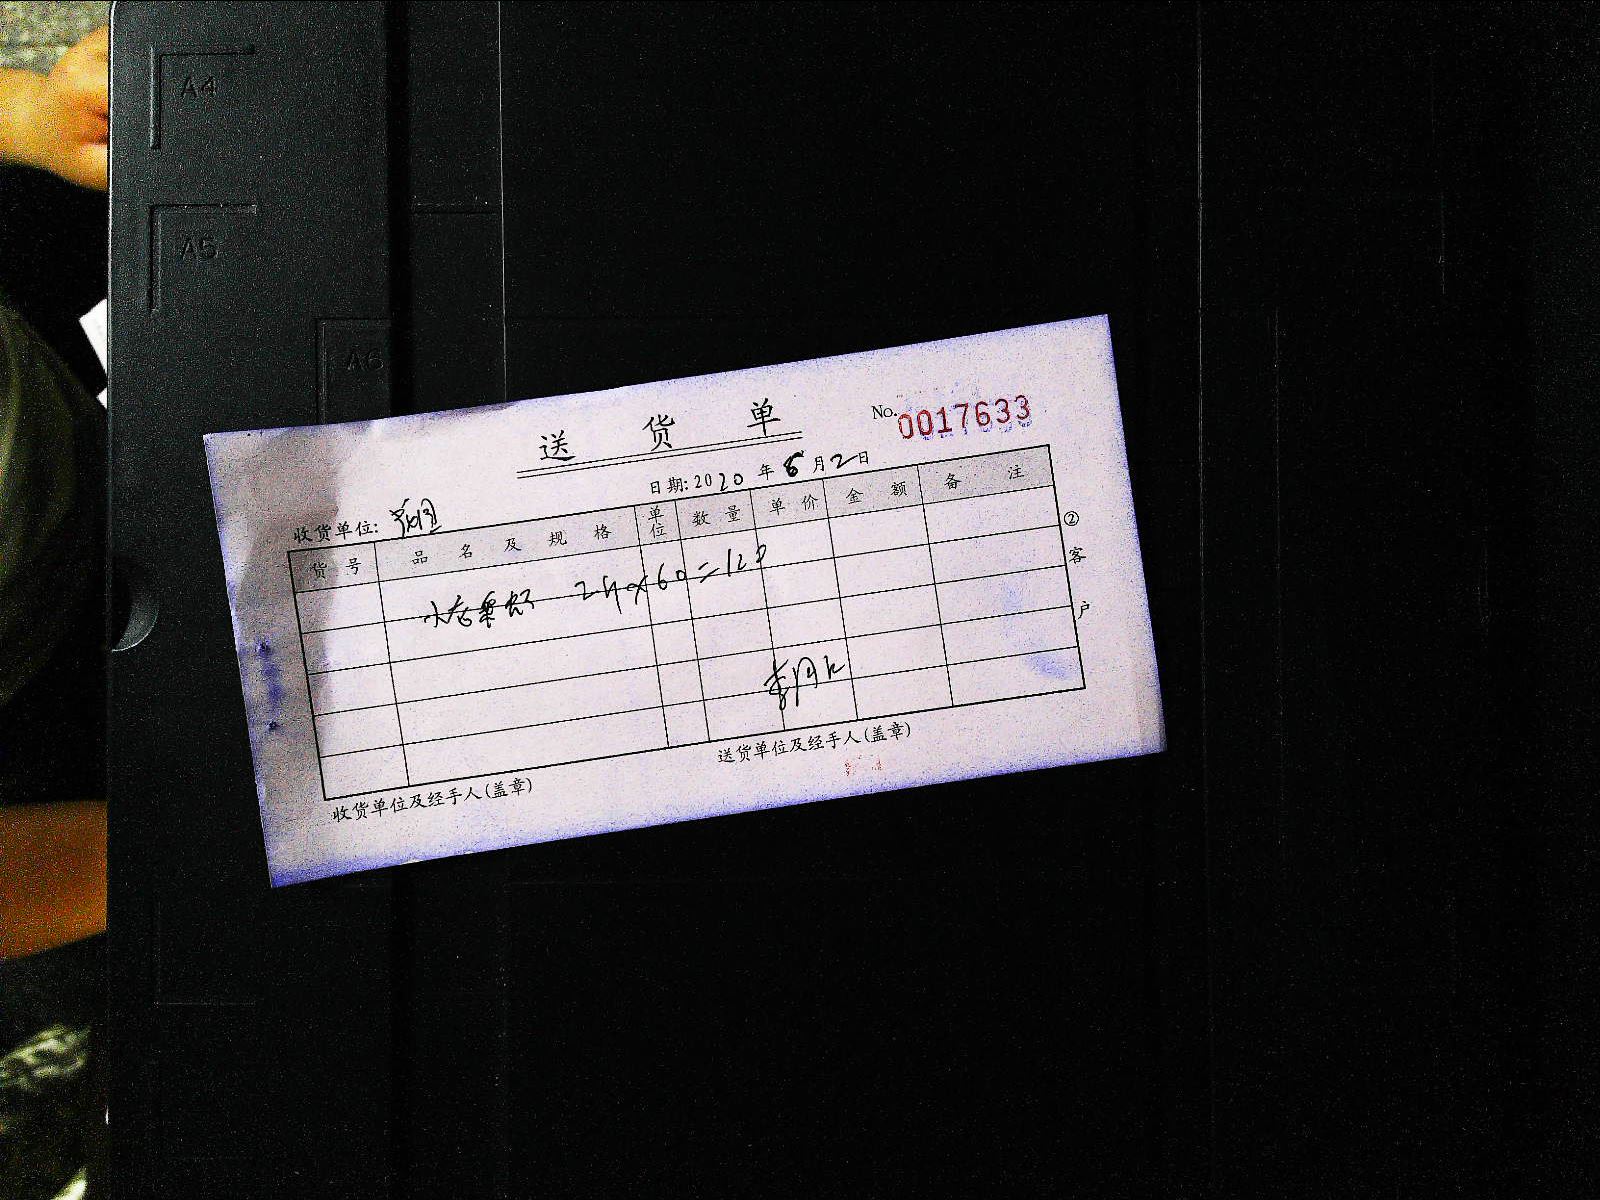 A4
A5
A6
送货单
No. 0017633
日期: 2020年6月2日
收货单位:
货号 品名及规格 单位 数量 单价 金额 备注
②客户
收货单位及经手人(盖章)
送货单位及经手人(盖章)